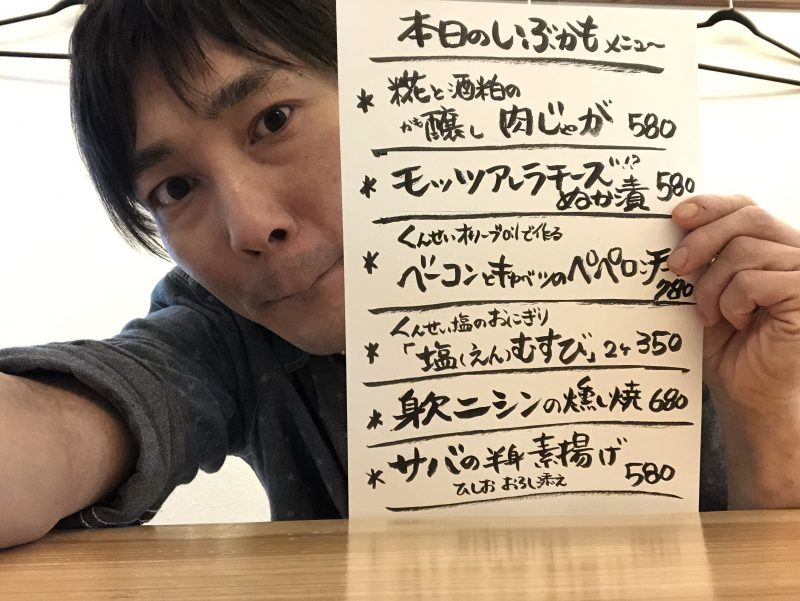 本日のいぶかもメニュー
* 糀と酒粕の
かも醸し 肉じゃが 580
* モッツアレラチーズ!?
ぬか漬 580
くんせいオリーブoilで作る
* ベーコンとキャベツのペペロンチー
780
くんせい塩のおにぎり
* 「塩(えん)むすび」2ヶ 350
* 身欠ニシンの燻し焼 680
* サバの半身 素揚げ
ひしお おろし添え 580